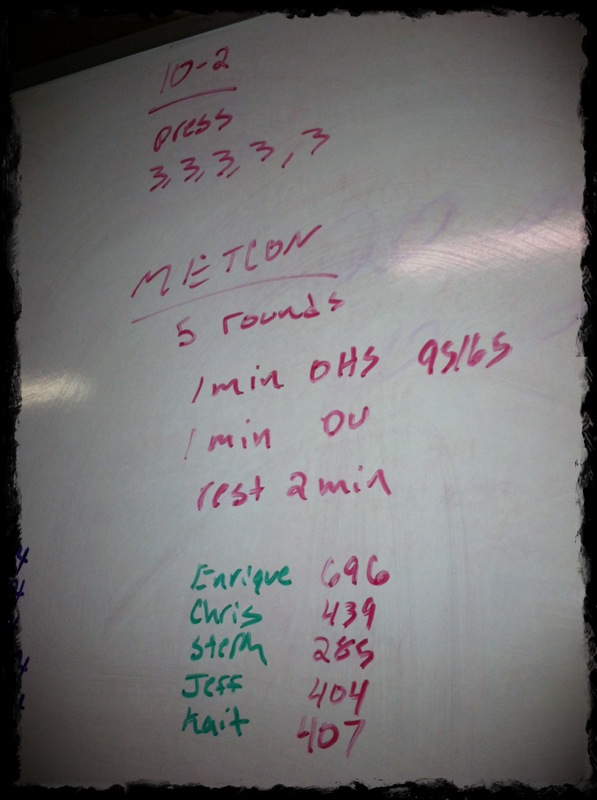 10-2
press
3,3,3,3,3
METCON
5 rounds
1 min OHS 95/65
1 min DU
rest 2 min
Enrique 696
Chris 439
Steph 285
Jeff 404
Kait 407